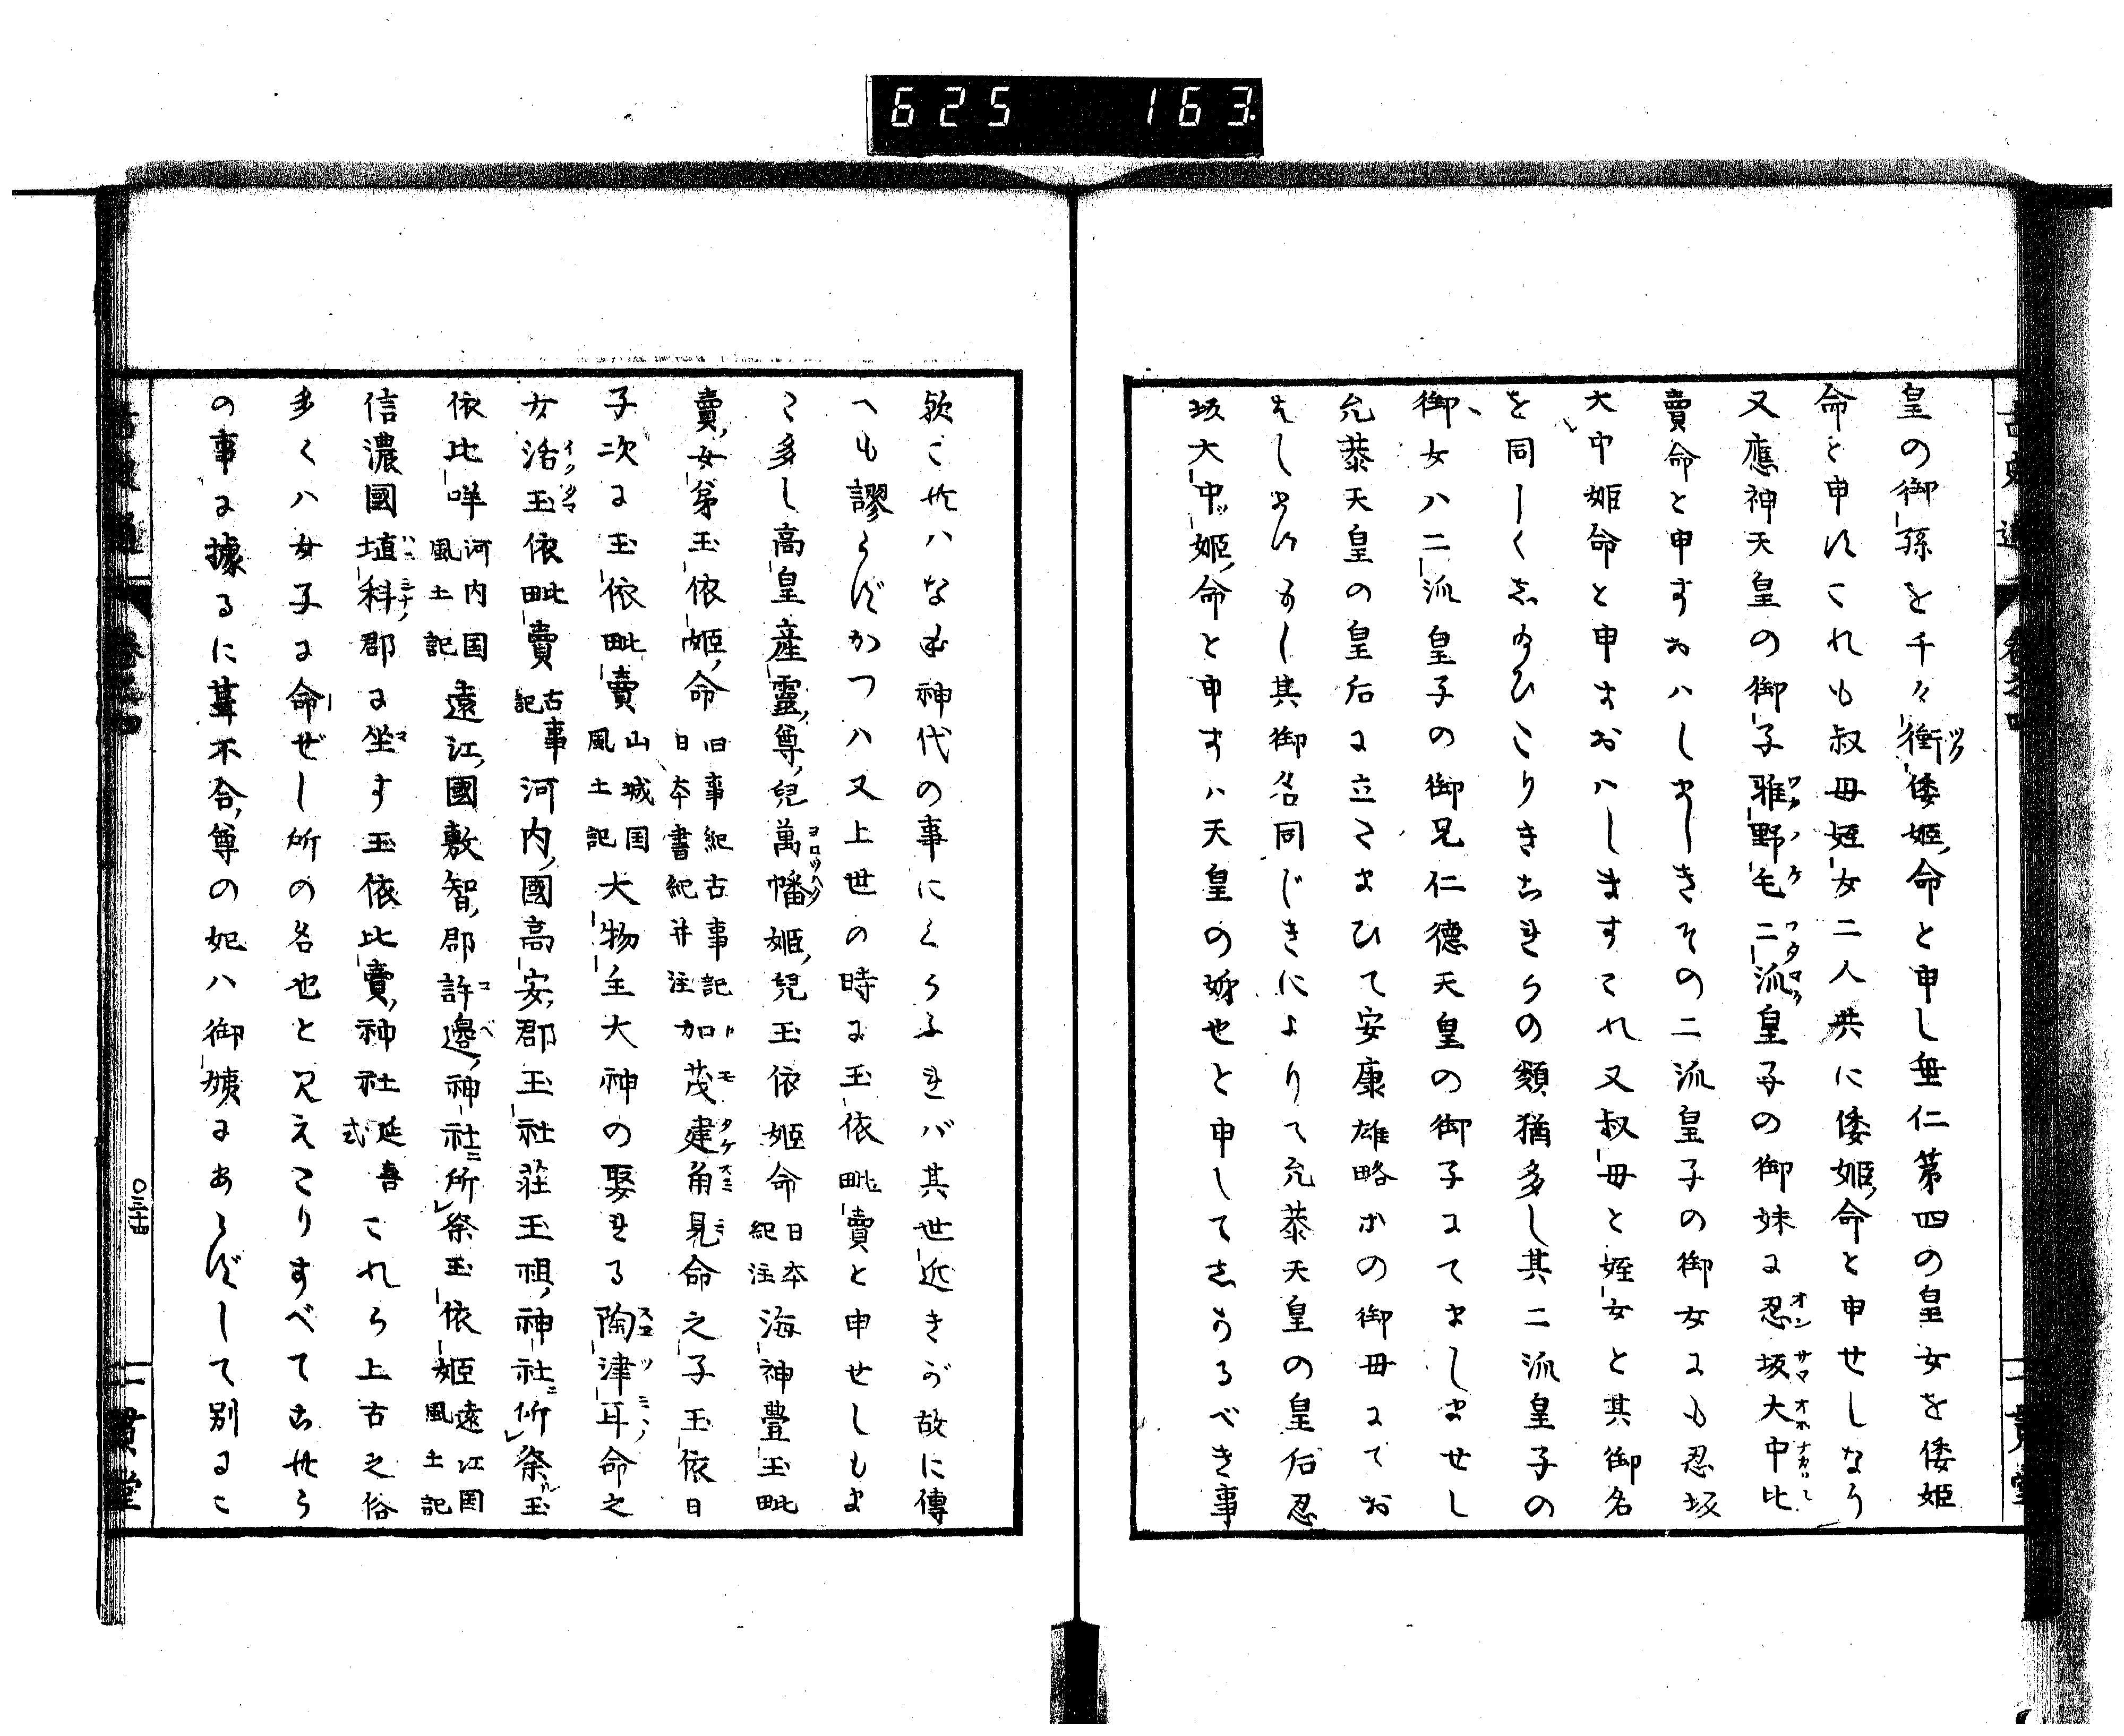 625 163
皇の御孫を千々衝倭姫命と申し垂仁第四の皇女を倭姫
命と申けこれも叔母姪女二人共に倭姫命と申せしなり
又應神天皇の御子雅野毛二流皇子の御妹ま忍坂大中比
賣命と申すおハしましきその二流皇子の御女まも忍坂
大中姫命と申すおハしますこれ又叔母と姪女と其御名
を同しくし給ひたりきかゝるの類猶多し其二流皇子の
御女ハ二流皇子の御兄仁德天皇の御子まてましませし
允恭天皇の皇后ま立さまひて安康雄略かの御母まてお
はしませし其御名同じきによりて允恭天皇の皇后忍
坂大中姫命と申すハ天皇の姉也と申してしかるべき事
歟これハなお神代の事にくらふれバ其世近きが故に傳
へも謬らずかつハ又上世の時ま玉依毗賣と申せしもま
た多し高皇産靈尊兒萬幡姫兒玉依姫命日本紀注海神豊玉毗
賣女弟玉依姫命旧事紀古事記日本書紀并注加茂建角見命之子玉依日
子次ま玉依毗賣山城国風土記大物主大神の娶れる陶津耳命之
女活玉依毗賣古事記河内國高安郡玉社荘玉祖神社ニ所祭ル玉
依比咩河内国風土記遠江國敷智郡許邊神社ニ所祭玉依姫遠江国風土記
信濃國埴科郡ま坐す玉依比賣神社延喜式これら上古之俗
多くハ女子ま命ぜし所の名也と見えたりすべてかゝる
の事ま據るに葺不合尊の妃ハ御姨まあらずして別また
〇三十四